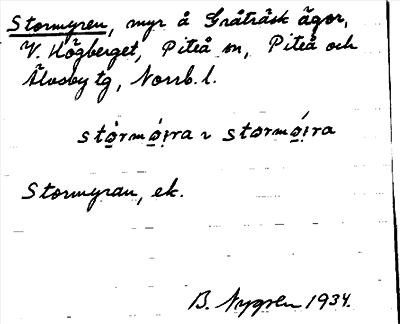 Stormyren, myr å Gråträsk ägor,
V. Högberget, Piteå sn, Piteå och
Älvsby tg, Norrb. l.
stòrmo̱i̯ra ~ stormó̱i̯ra
Stormyran, ek.
B. Nygren 1934.